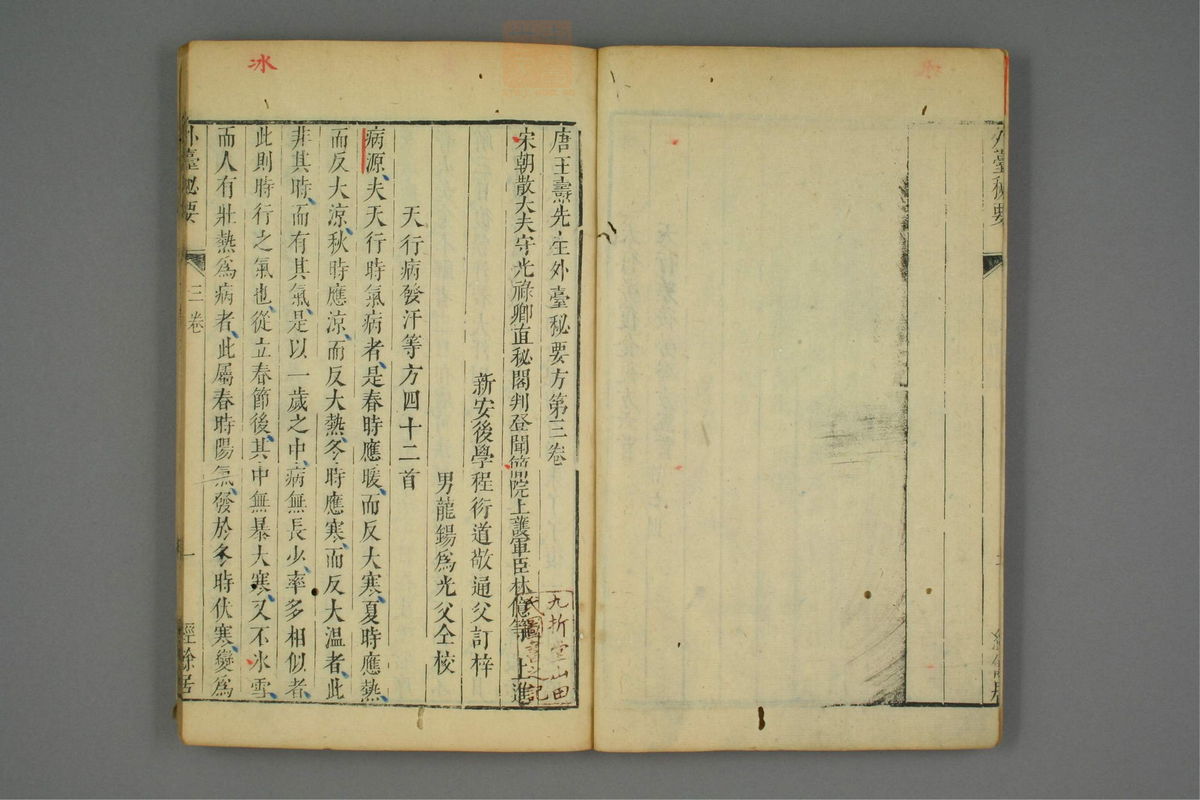 外臺秘要
唐王燾先生外臺秘要方第三卷
宋朝散大夫守光祿卿直秘閣判登聞簡院上護軍臣林億等上進
新安後學程衍道敬通父訂梓
男龍錫為光父仝校
天行病發汗等方四十二首
病源、夫天行時氣病者、是春時應暖、而反大寒、夏時應熱、
而反大涼、秋時應涼、而反大熱、冬時應寒、而反大溫者、此
非其時、而有其氣、是以一歲之中、病無長少、率多相似者、
此則時行之氣也、從立春節後、其中無暴大寒、又不氷雪、
而人有壯熱為病者、此屬春時陽氣、發於冬時伏寒、變為
外臺秘要
三卷
一
經餘居
冰
九折堂山田
氏圖書之記